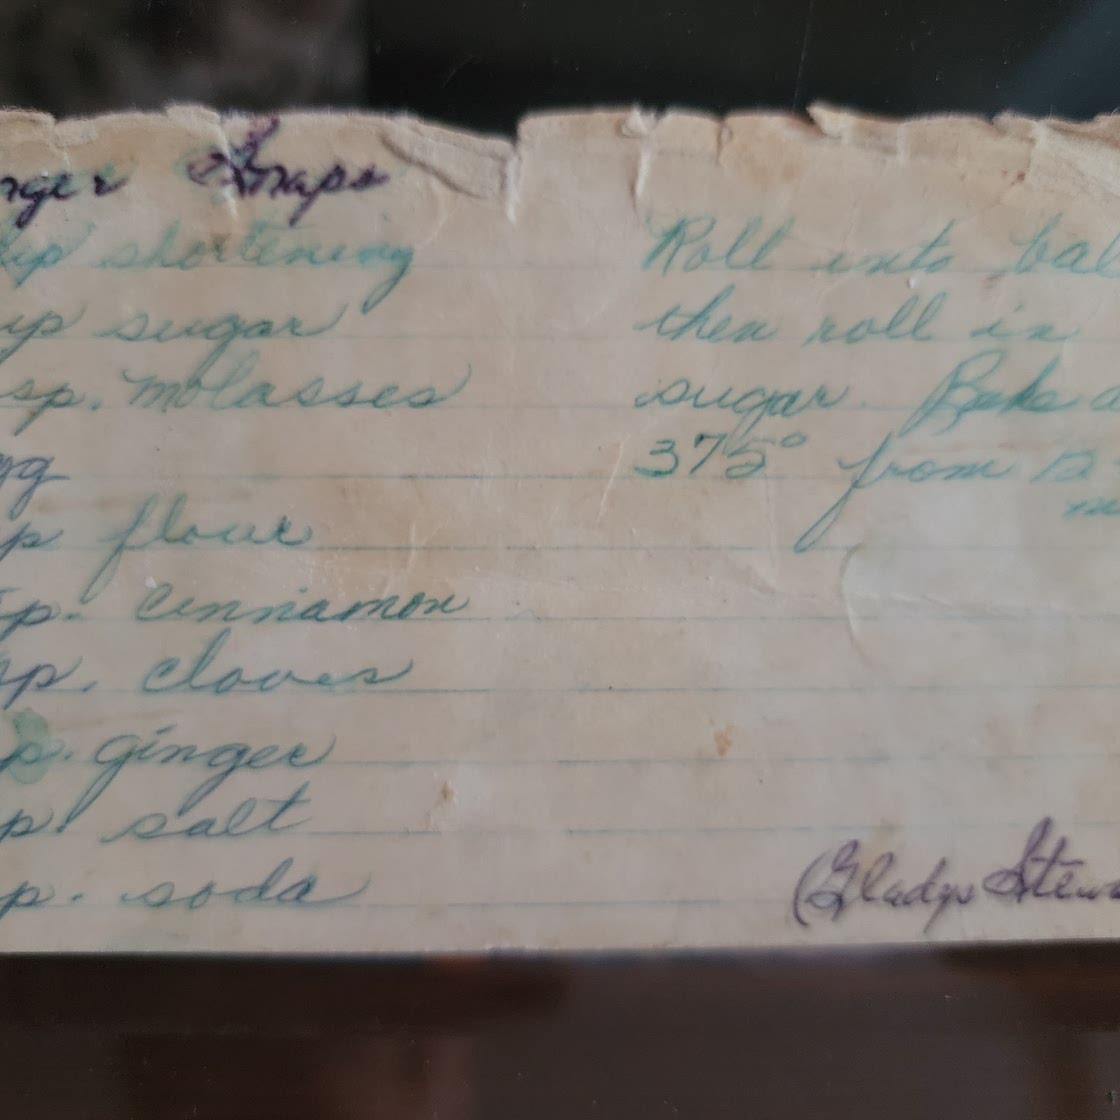 nger Snaps
up shortening
up sugar
sp. molasses
gg
p flour
sp. cinnamon
sp. cloves
p. ginger
p. salt
p. soda
Roll into bal
then roll in
sugar. Bake a
375° from 12
(Gladys Stew